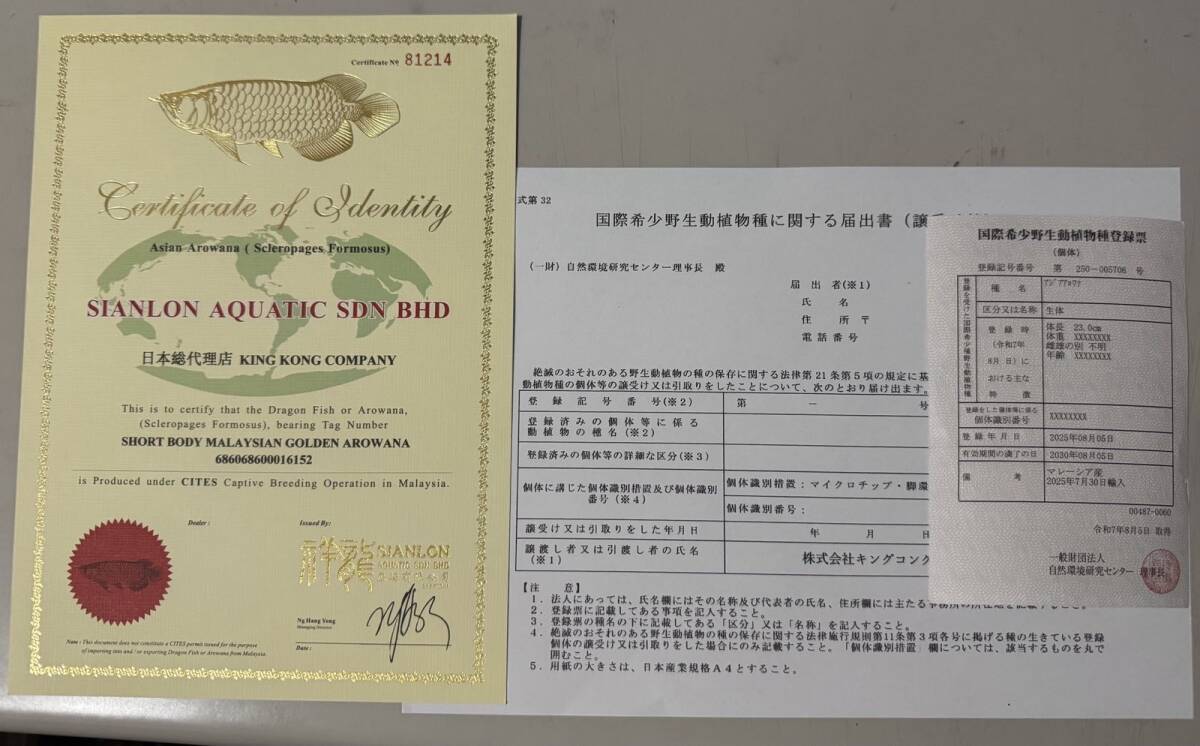 Certificate No 81214
Certificate of Identity
Asian Arowana ( Scleropages Formosus)
SIANLON AQUATIC SDN BHD
日本総代理店 KING KONG COMPANY
This is to certify that the Dragon Fish or Arowana,
(Scleropages Formosus), bearing Tag Number
SHORT BODY MALAYSIAN GOLDEN AROWANA
686068600016152
is Produced under CITES Captive Breeding Operation in Malaysia.
Dealer :
Issued By:
祥龍 SIANLON
AQUATIC SDN BHD
Ng Hang Yong
Managing Director
Date :
Note : This document does not constitute a CITES permit issued for the purpose
of importing into and / or exporting Dragon Fish or Arowana from Malaysia.
式第 32
国際希少野生動植物種に関する届出書（譲
（一財）自然環境研究センター理事長 殿
届 出 者(※1)
氏 名
住 所 〒
電 話 番 号
絶滅のおそれのある野生動植物の種の保存に関する法律第21条第5項の規定に基
動植物種の個体等の譲受け又は引取りをしたことについて、次のとおり届け出ます。
登 録 記 号 番 号(※2) 第 － 号
登録済みの個体等に係る
動植物の種名(※2)
登録済みの個体等の詳細な区分(※3)
個体に講じた個体識別措置及び個体識別
番号(※4)
個体識別措置：マイクロチップ・脚環
個体識別番号：
譲受け又は引取りをした年月日 年 月 日
譲渡し者又は引渡し者の氏名
(※1)
株式会社キングコング
【注 意】
1．法人にあっては、氏名欄にはその名称及び代表者の氏名、住所欄には主たる事務所の所在地を記載すること。
2．登録票に記載してある事項を記入すること。
3．登録票の種名の下に記載してある「区分」又は「名称」を記入すること。
4．絶滅のおそれのある野生動植物の種の保存に関する法律施行規則第11条第3項各号に掲げる種の生きている登録
個体の譲受け又は引取りをした場合にのみ記載すること。「個体識別措置」欄については、該当するものを丸で
囲むこと。
5．用紙の大きさは、日本産業規格A4とすること。
国際希少野生動植物種登録票
（個体）
登録記号番号 第 250-005706 号
登録を受けた国際希少野生動植物種
種 名 アジアアロワナ
区分又は名称 生体
登 録 時
(令和7年
8月 日)に
おける主な
特 徴
体長 23.0cm
体重 XXXXXXXX
雌雄の別 不明
年齢 XXXXXXXX
登録をした個体等に係る
個体識別番号 XXXXXXXX
登 録 年 月 日 2025年08月05日
有効期間の満了の日 2030年08月05日
備 考 マレーシア産
2025年7月30日輸入
00487-0060
令和7年8月5日 取得
一般財団法人
自然環境研究センター 理事長